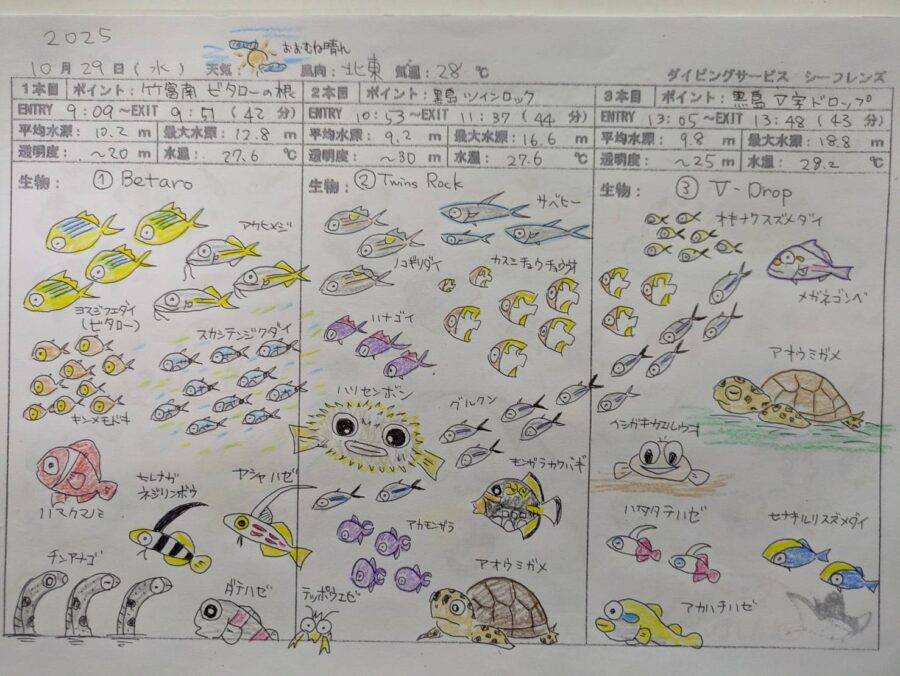 2025
おおむね晴れ
10月29日(水) 天気: 風向: 北東 気温: 28 ℃
ダイビングサービス シーフレンズ
1本目 ポイント: 竹富南 ビタローの根
ENTRY 9:09 ~EXIT 9:51 (42 分)
平均水深: 10.2 m 最大水深: 12.8 m
透明度: ~20 m 水温: 27.6 ℃
生物: ① Betaro
アカヒメジ
ヨスジフエダイ
(ビタロー)
スカシテンジクダイ
キンメモドキ
ハマクマノミ
ヒレナガ
ネジリンボウ
ヤシャハゼ
チンアナゴ
ダテハゼ
2本目 ポイント: 黒島 ツインロック
ENTRY 10:53 ~EXIT 11:37 (44 分)
平均水深: 9.2 m 最大水深: 16.6 m
透明度: ~30 m 水温: 27.6 ℃
生物: ② Twins Rock
サベヒー
ノコギリダイ
カスミチョウチョウウオ
ハナゴイ
ハリセンボン
グルクン
モンガラカワハギ
アカモンガラ
アオウミガメ
テッポウエビ
3本目 ポイント: 黒島 V字ドロップ
ENTRY 13:05 ~EXIT 13:48 (43 分)
平均水深: 9.8 m 最大水深: 18.8 m
透明度: ~25 m 水温: 28.2 ℃
生物: ③ V-Drop
オキナワスズメダイ
メガネゴンベ
アオウミガメ
イシガキカエルウオ
ハタタテハゼ
セナキルリスズメダイ
アカハチハゼ